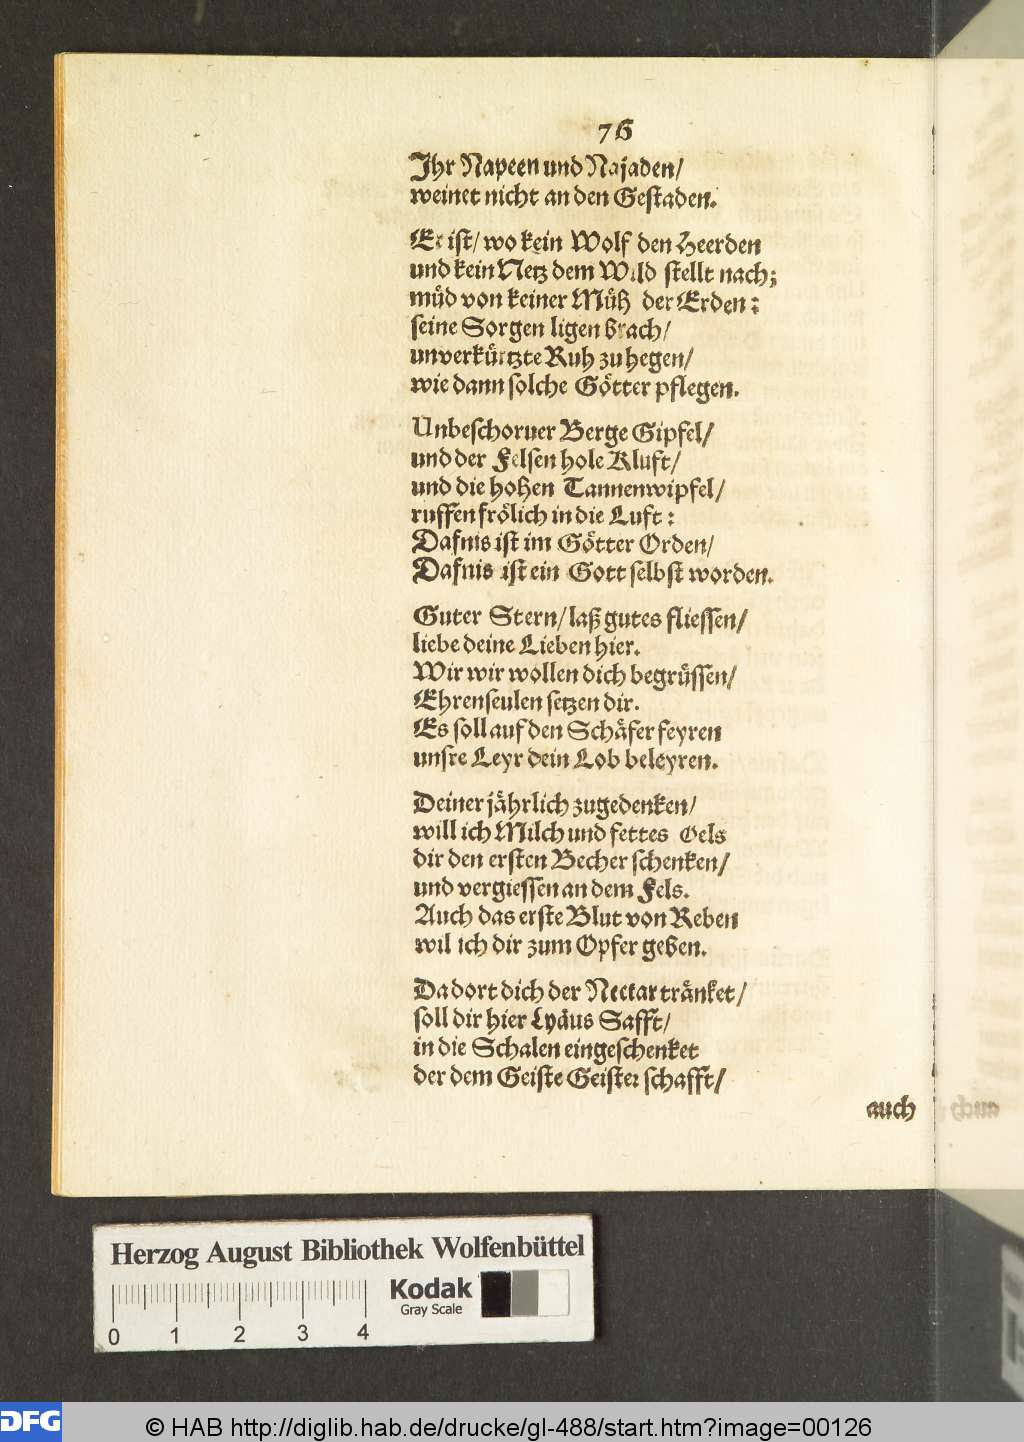 76
Ihr Napeen und Najaden/
weinet nicht an den Gestaden.
Er ist/ wo kein Wolf den Heerden
und kein Netz dem Wild stellt nach;
müd von keiner Müh der Erden:
seine Sorgen ligen brach/
unverkürtzte Ruh zu hegen/
wie dann solche Götter pflegen.
Unbeschorner Berge Gipfel/
und der Felsen hole Kluft/
und die hohen Tannenwipfel/
ruffen frölich in die Luft:
Dafnis ist im Götter Orden/
Dafnis ist ein Gott selbst worden.
Guter Stern/ laß gutes fliessen/
liebe deine Lieben hier.
Wir wir wollen dich begrüssen/
Ehrenseulen setzen dir.
Es soll auf den Schäfer feyren
unsre Leyr dein Lob beleyren.
Deiner jährlich zugedenken/
will ich Milch und fettes Oels
dir den ersten Becher schenken/
und vergiessen an dem Fels.
Auch das erste Blut von Reben
wil ich dir zum Opfer geben.
Da dort dich der Nectar tränket/
soll dir hier Lyäus Safft/
in die Schalen eingeschenket
der dem Geiste Geister schafft/
auch
Herzog August Bibliothek Wolfenbüttel
0 1 2 3 4
Kodak
Gray Scale
DFG
© HAB http://diglib.hab.de/drucke/gl-488/start.htm?image=00126